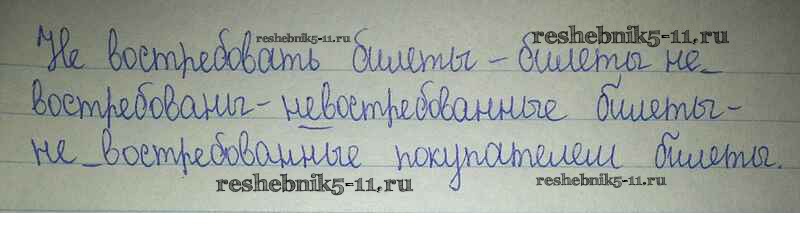 reshebnik5-11.ru reshebnik5-11.ru
Не востребовать билеты – билеты не_
востребованы – невостребованные билеты –
не_востребованные покупателем билеты.
reshebnik5-11.ru reshebnik5-11.ru